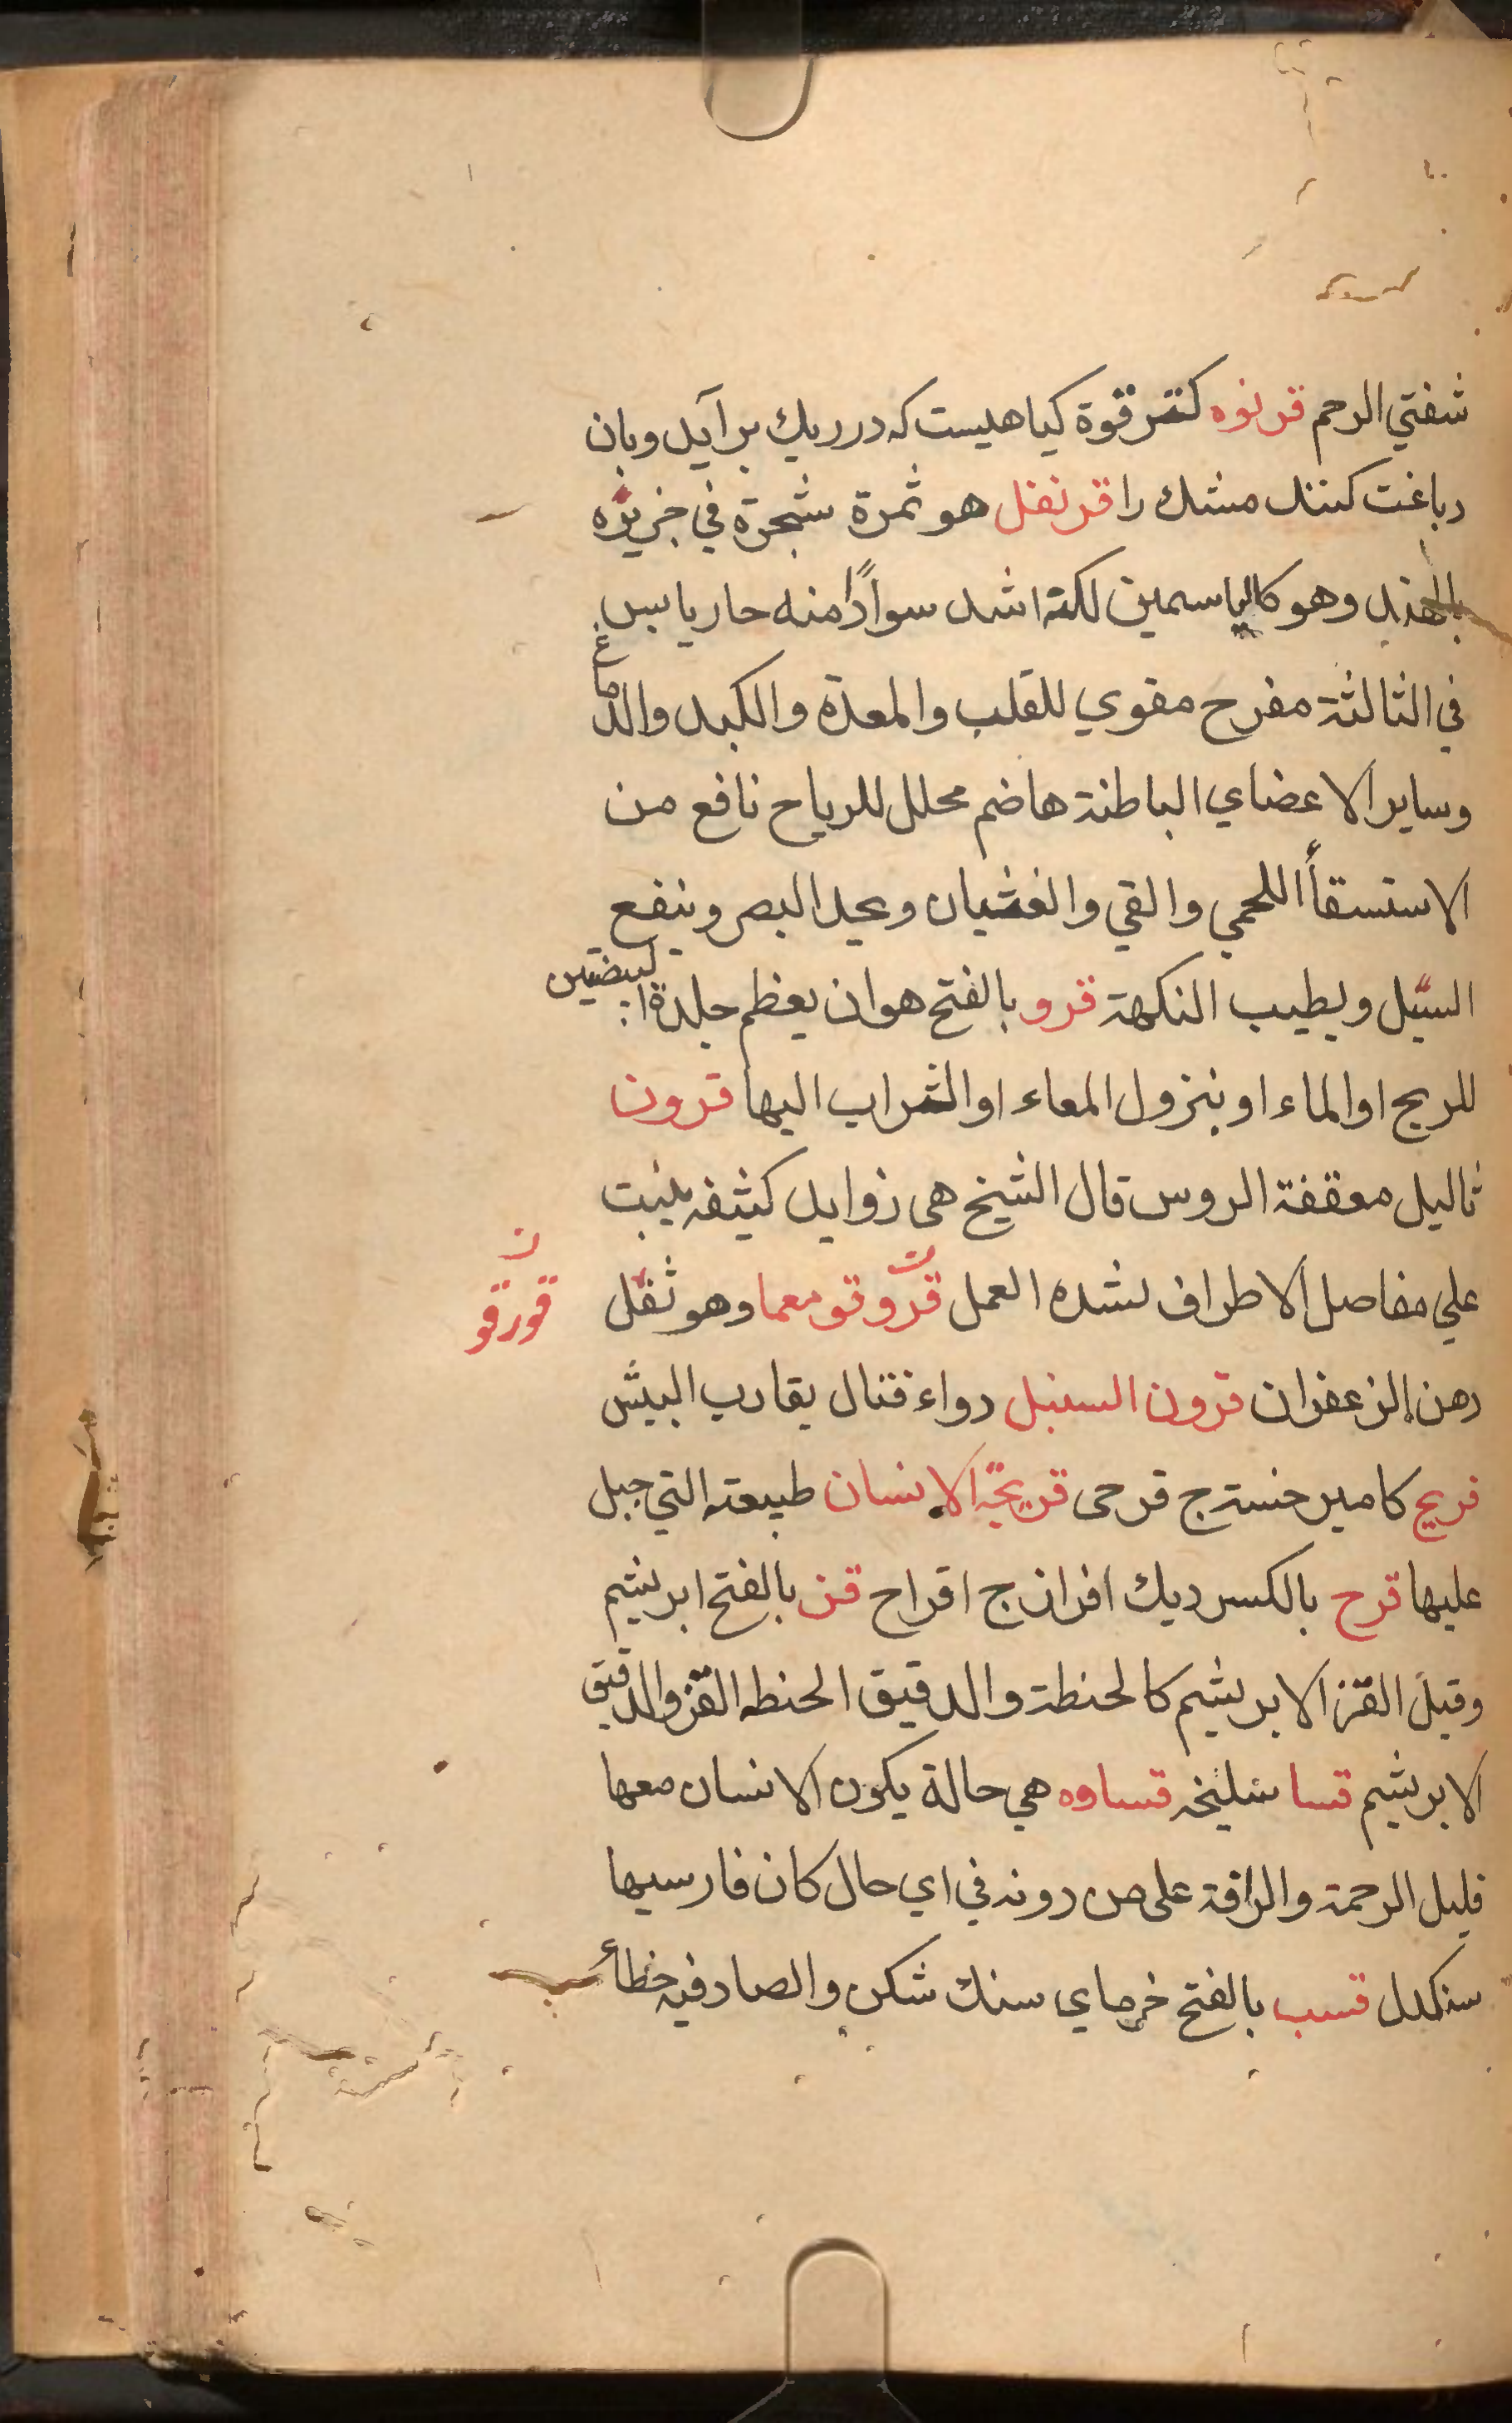 شفتي الرحم قرنوه كترقوة كياهيست كه در ريك برآيد وبان
دباغت كنند مشك را قرنفل هو ثمرة شجرة في جزيره
بالهند وهو كالياسمين لكنه اشد سوادًا منه حار يابس
في الثالثة مفرح مقوي للقلب والمعدة والكبد والدماغ
وساير الاعضاي الباطنة هاضم محلل للرياح نافع من
الاستسقأ اللحمي والقي والغشيان ويحد البصر وينفع
السبّل ويطيب النكهة قرو بالفتح هو ان يعظم جلدة البيضتين
للريح او الماء او بنزول المعاء او الشراب اليها قرون
ثاليل معقفة الروس قال الشيخ هي زوايد كثيفه ينبت
علي مفاصل الاطراف لشده العمل قروقو معما وهو ثقل
قورقو ن
دهن الزعفران قرون السنبل دواء قتال يقارب البيش
قريح كامير خسته ج قرحى قريحّة الانسان طبيعته التي جبل
عليها قزح بالكسر ديك افزار ج اقزاح قز بالفتح ابريشم
وقيل القزّ الابريشيم كالحنطة والدقيق الحنطه القزّ والدقيق
الابريشيم قسا سليخه قساوه هي حالة يكون الانسان معها
قليل الرحمة والرافة على من دونه في اي حال كان فارسيها
سنكدل قسب بالفتح خرماي سنك شكن والصاد فيه خطأ